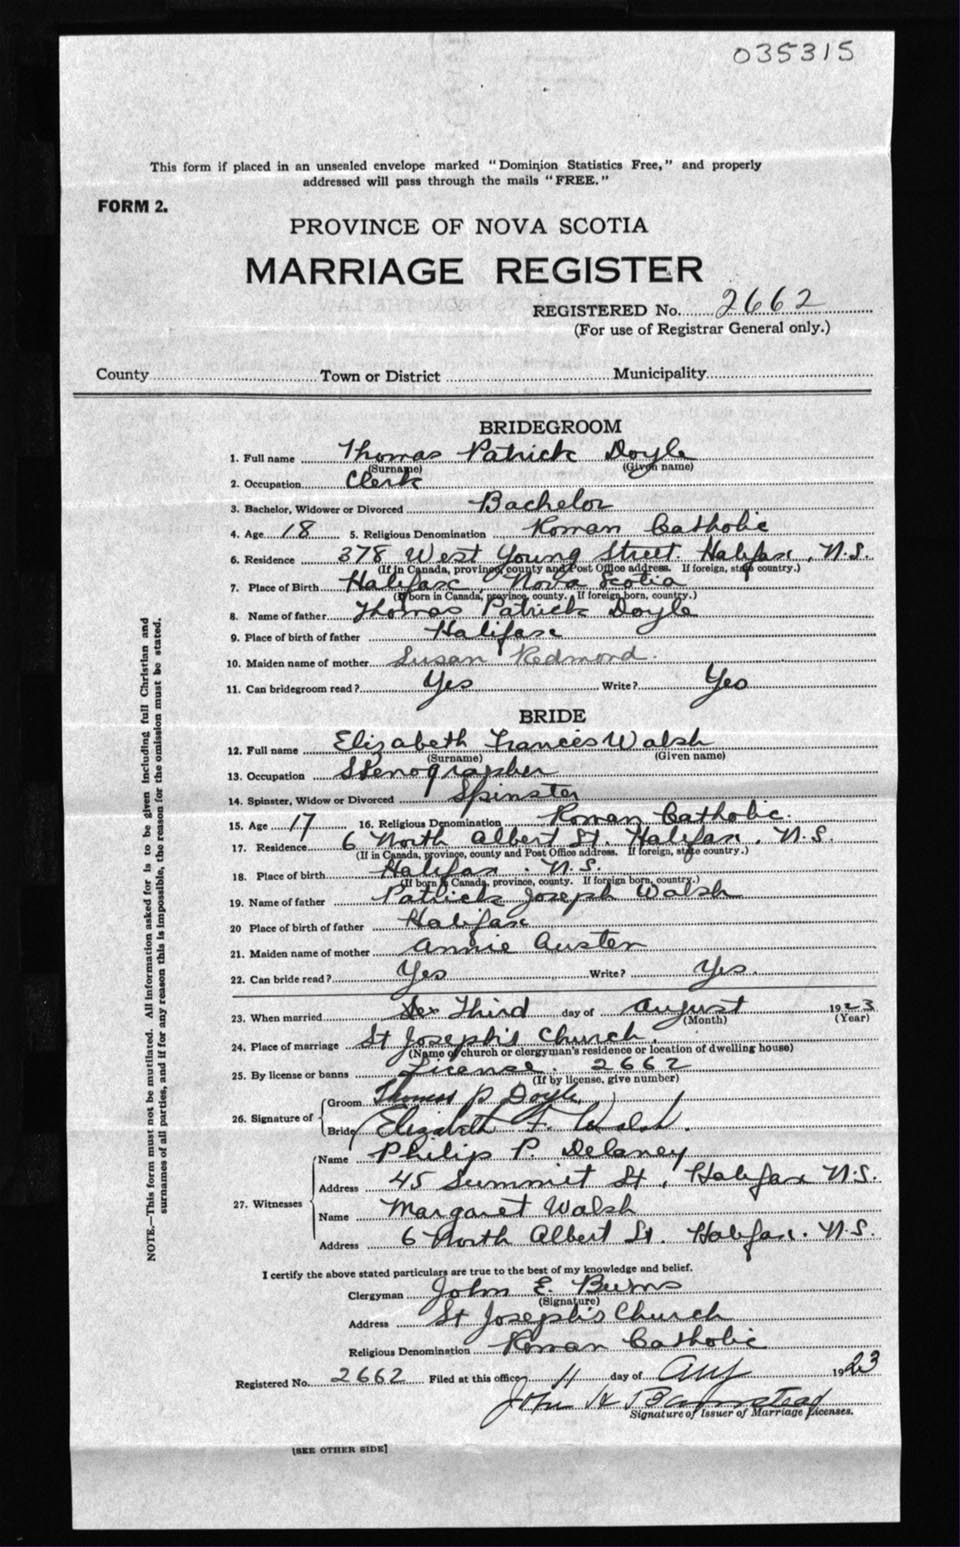 035315
This form if placed in an unsealed envelope marked "Dominion Statistics Free," and properly
addressed will pass through the mails "FREE."
FORM 2.
PROVINCE OF NOVA SCOTIA
MARRIAGE REGISTER
REGISTERED No. 2662
(For use of Registrar General only.)
County Town or District Municipality
BRIDEGROOM
1. Full name Thomas Patrick Doyle
(Surname) (Given name)
2. Occupation Clerk
3. Bachelor, Widower or Divorced Bachelor
4. Age 18 5. Religious Denomination Roman Catholic
6. Residence 378 West Young Street. Halifax, N.S.
(If in Canada, province, county and Post Office address. If foreign, state country.)
7. Place of Birth Halifax, Nova Scotia
(If born in Canada, province, county. If foreign born, county.)
8. Name of father Thomas Patrick Doyle
9. Place of birth of father Halifax
10. Maiden name of mother Susan Redmond.
11. Can bridegroom read? Yes Write? Yes
BRIDE
12. Full name Elizabeth Frances Walsh
(Surname) (Given name)
13. Occupation Stenographer
14. Spinster, Widow or Divorced Spinster
15. Age 17 16. Religious Denomination Roman Catholic.
17. Residence 6 North Albert St. Halifax, N.S.
(If in Canada, province, county and Post Office address. If foreign, state country.)
18. Place of birth Halifax. N.S.
(If born in Canada, province, county. If foreign born, country.)
19. Name of father Patrick Joseph Walsh
20 Place of birth of father Halifax
21. Maiden name of mother Annie Austen
22. Can bride read? Yes Write? Yes.
23. When married Third day of August 1923
(Month) (Year)
24. Place of marriage St Joseph's Church.
(Name of church or clergyman's residence or location of dwelling house)
25. By license or banns License. 2662
(If by license, give number)
26. Signature of Groom Thomas P Doyle.
Bride Elizabeth F. Walsh.
27. Witnesses Name Philip P. Delaney
Address 45 Summit St, Halifax N.S.
Name Margaret Walsh
Address 6 North Albert St. Halifax. N.S.
I certify the above stated particulars are true to the best of my knowledge and belief.
Clergyman John E. Burns
(Signature)
Address St Joseph's Church
Religious Denomination Roman Catholic
Registered No. 2662 Filed at this office 11 day of Aug 1923
John H Barnstead
Signature of Issuer of Marriage Licenses.
[SEE OTHER SIDE]
NOTE.—This form must not be mutilated. All information asked for is to be given including full Christian and
surnames of all parties, and if for any reason this is impossible, the reason for the omission must be stated.